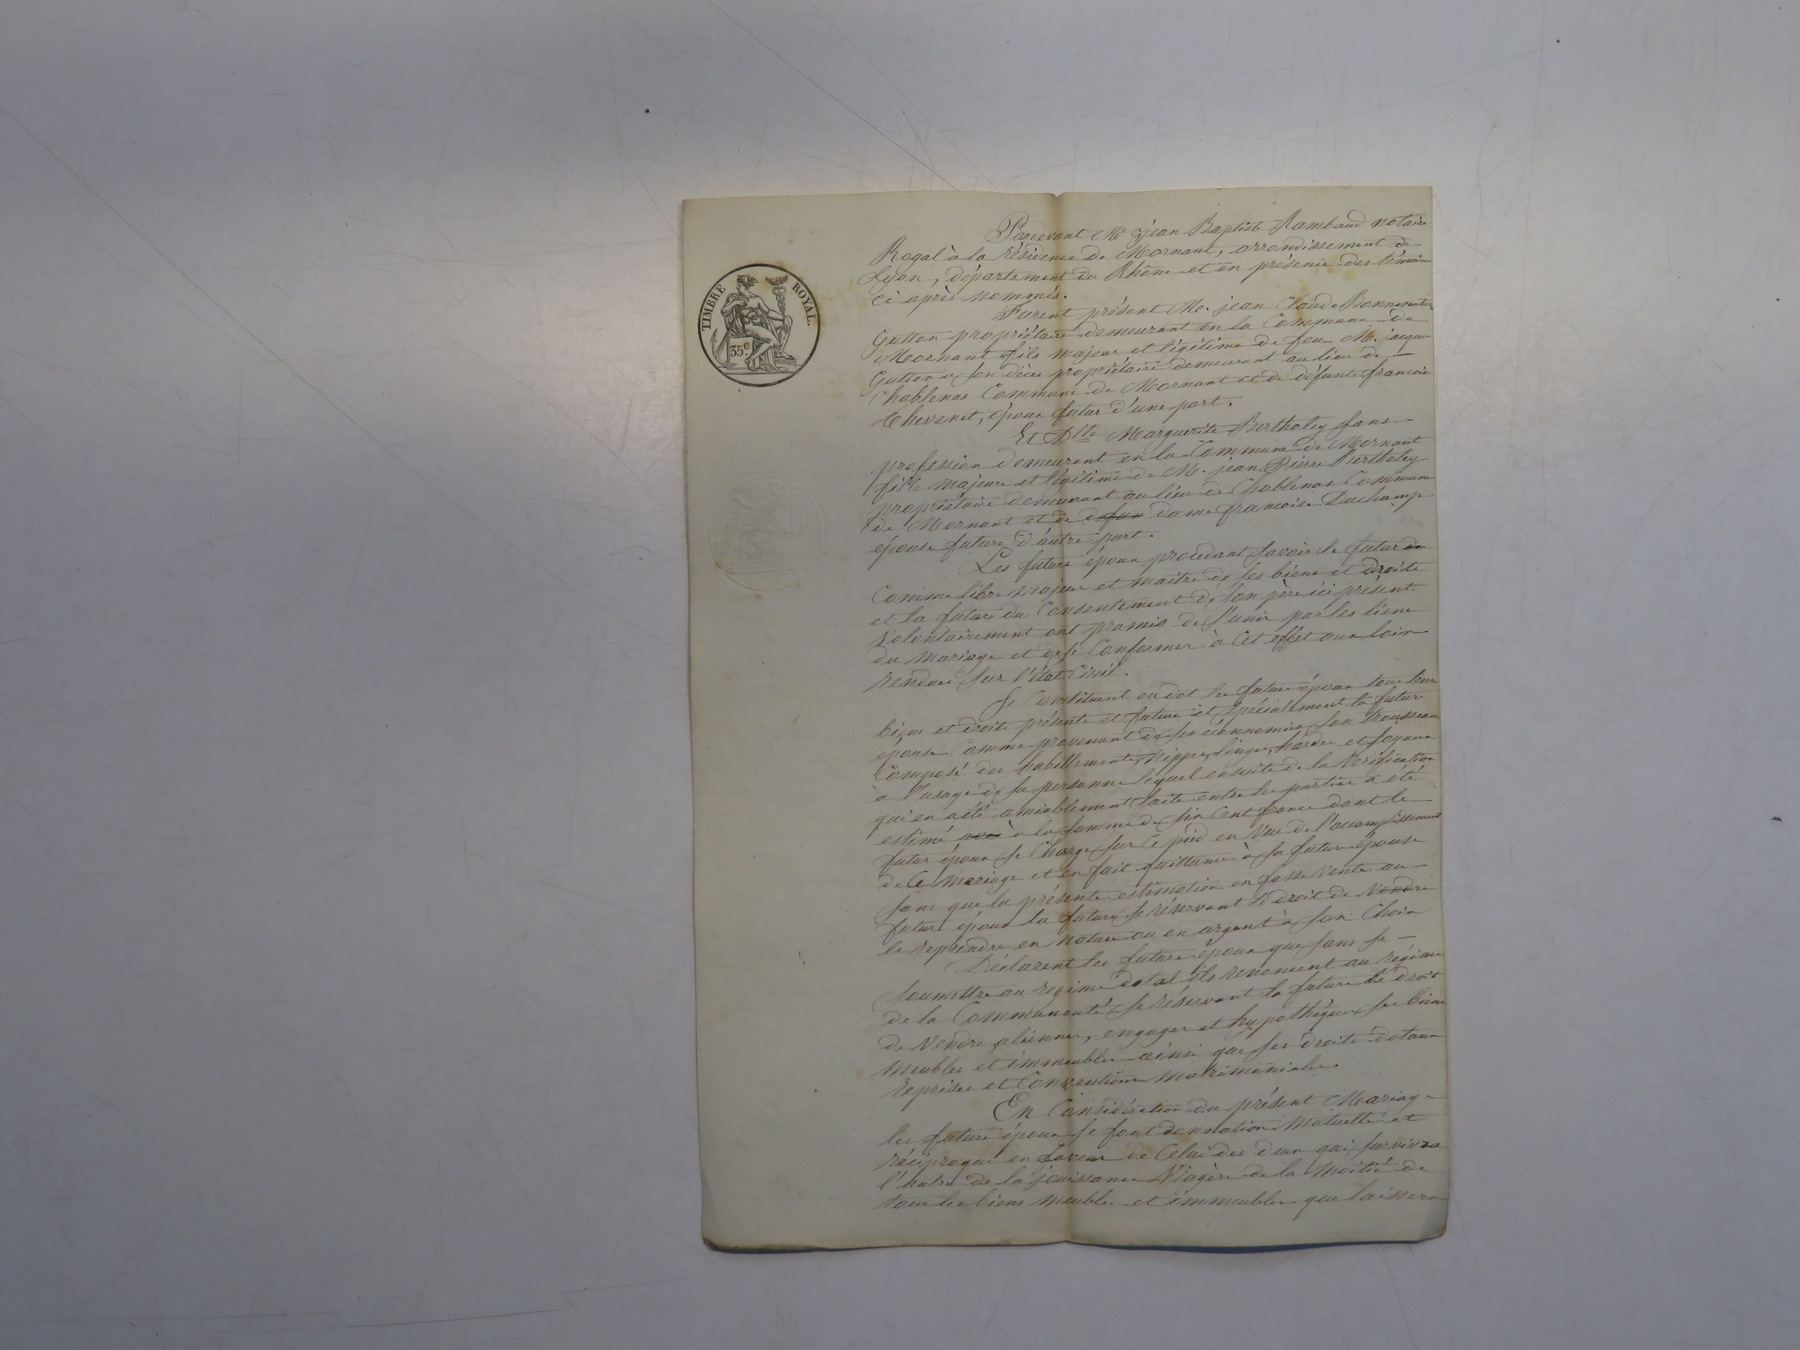 TIMBRE ROYAL.
35 c.
Pardevant Me jean Baptiste Rambaud notaire
Royal à la résidence de Mornant, arrondissement de
Lyon, département du Rhône et en présence des témoins
ci après nommés.
Furent présent M. jean Claude Bonnaventure
Gutton propriétaire demeurant en la Commune de
Mornant fils majeur et légitime de feu M. jacque
Gutton a son décès propriétaire demeurant au lieu de
Chablenas Commune de Mornant et de défunte francoise
Thevenet, époux futur d'une part.
Et Dlle Marguerite Bertholey sans
profession demeurant en la Commune de Mornant
fille majeure et légitime de M. jean Pierre Bertholey
propriétaire demeurant au lieu de Chablenas Commune
de Mornant et de dame francoise Duchamp
épouse future d'autre part.
Les futurs époux procédant savoir le futur
Comme libre Majeur et maitre de ses biens et droits
et la future du Consentement de son père ici présent
Volontairement ont promis de s'unir par les liens
du Mariage et de se Conformer à Cet effet aux loix
rendues sur l'état Civil.
Se Constituent en dot les futurs époux tous leurs
biens et droits présents et futurs et spécialement la future
épouse Comme provenant de ses économies son trousseau
Composé des habillements, Nippes, linges, hardes et joyaux
à l'usage de sa personne lequel ensuite de la Vérification
qui en a été amiablement faite entre les parties a été
estimé à la somme de six Cent francs dont le
futur époux se Charge sur Ce pied en Vue de l'accomplissement
de Ce Mariage et en fait quittance à sa future épouse
sans que la présente estimation en fasse Vente au
futur époux la future se réservant le droit de Vendre
le reprendre en nature ou en argent à son Choix
Déclarent les futurs époux que sans se
soumettre au régime dotal ils renoncent au régime
de la Communauté se réservant la future le droit
de Vendre, aliénner, engager et hypothéquer ses biens
Meubles et immeubles ainsi que ses droits dotaux
reprises et Conventions Matrimoniales.
En Considération du présent Mariage
les futurs époux se font donnation Mutuelle et
réciproque en faveur de Celui des deux qui survivra
l'autre de la jouissance Viagère de la Moitié de
tous les biens Meubles et immeubles que laissera